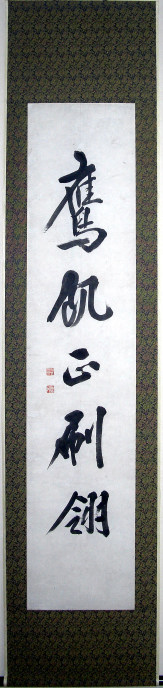 鷹飢正刷翎